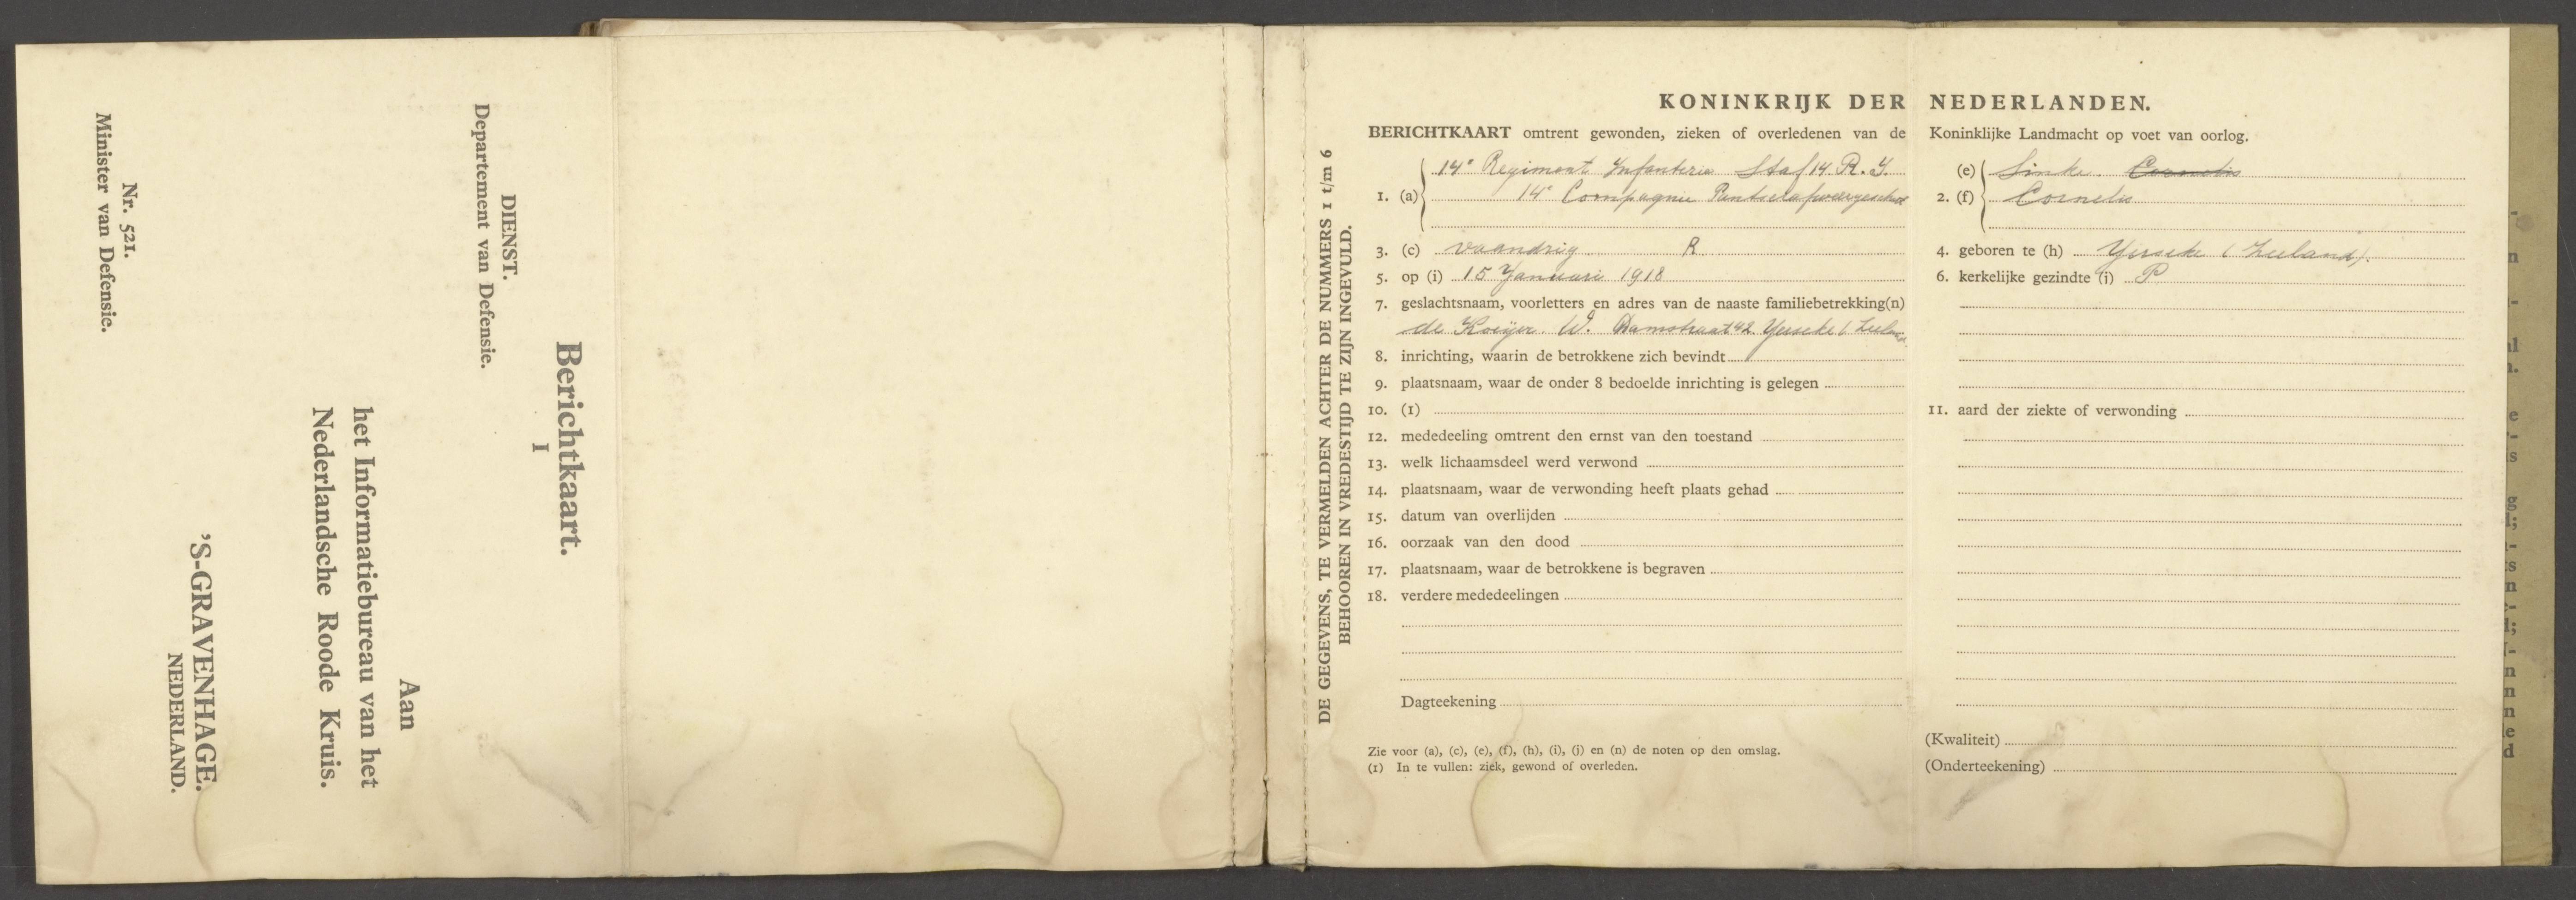 Nr. 521.
Minister van Defensie.
DIENST.
Departement van Defensie.
Berichtkaart.
I
Aan
het Informatiebureau van het
Nederlandsche Roode Kruis.
'S-GRAVENHAGE.
NEDERLAND.
DE GEGEVENS, TE VERMELDEN ACHTER DE NUMMERS 1 t/m 6
BEHOOREN IN VREDESTIJD TE ZIJN INGEVULD.
KONINKRIJK DER NEDERLANDEN.
BERICHTKAART omtrent gewonden, zieken of overledenen van de Koninklijke Landmacht op voet van oorlog.
1. (a) 14e Regiment Infanterie Staf 14 R. I.
14e Compagnie Pantserafweergeschut
(e) Sinke. Cornelis
2. (f) Cornelis
3. (c) vaandrig R
4. geboren te (h) Yerseke (Zeeland).
5. op (i) 15 Januari 1918
6. kerkelijke gezindte (j) P
7. geslachtsnaam, voorletters en adres van de naaste familiebetrekking(n)
de Koeijer W. Damstraat 42 Yerseke (Zeeland
8. inrichting, waarin de betrokkene zich bevindt
9. plaatsnaam, waar de onder 8 bedoelde inrichting is gelegen
10. (1)
11. aard der ziekte of verwonding
12. mededeeling omtrent den ernst van den toestand
13. welk lichaamsdeel werd verwond
14. plaatsnaam, waar de verwonding heeft plaats gehad
15. datum van overlijden
16. oorzaak van den dood
17. plaatsnaam, waar de betrokkene is begraven
18. verdere mededeelingen
Dagteekening
(Kwaliteit)
(Onderteekening)
Zie voor (a), (c), (e), (f), (h), (i), (j) en (n) de noten op den omslag.
(1) In te vullen: ziek, gewond of overleden.